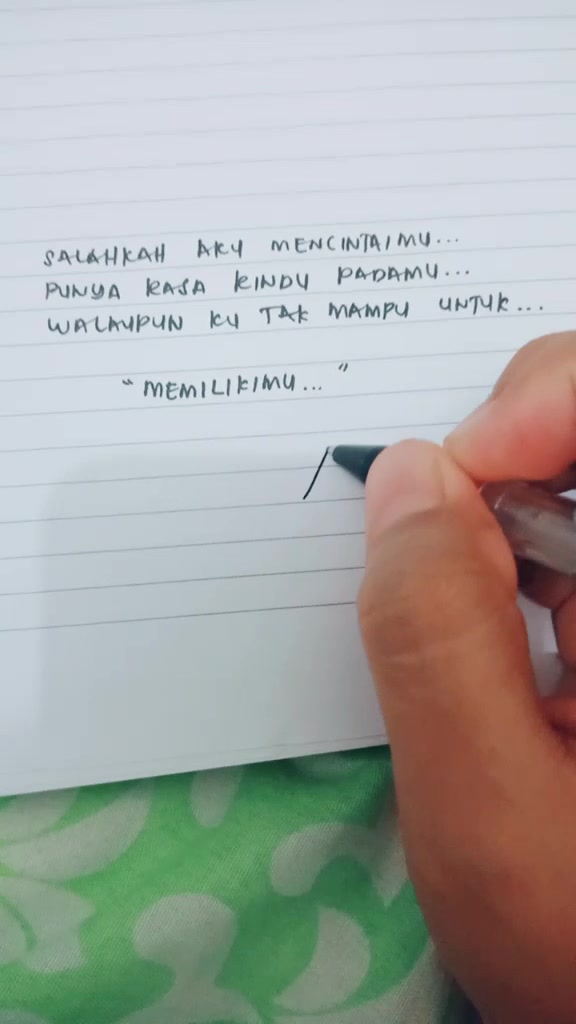 SALAHKAH AKU MENCINTAIMU...
PUNYA RASA RINDU PADAMU...
WALAUPUN KU TAK MAMPU UNTUK...
"MEMILIKIMU..."